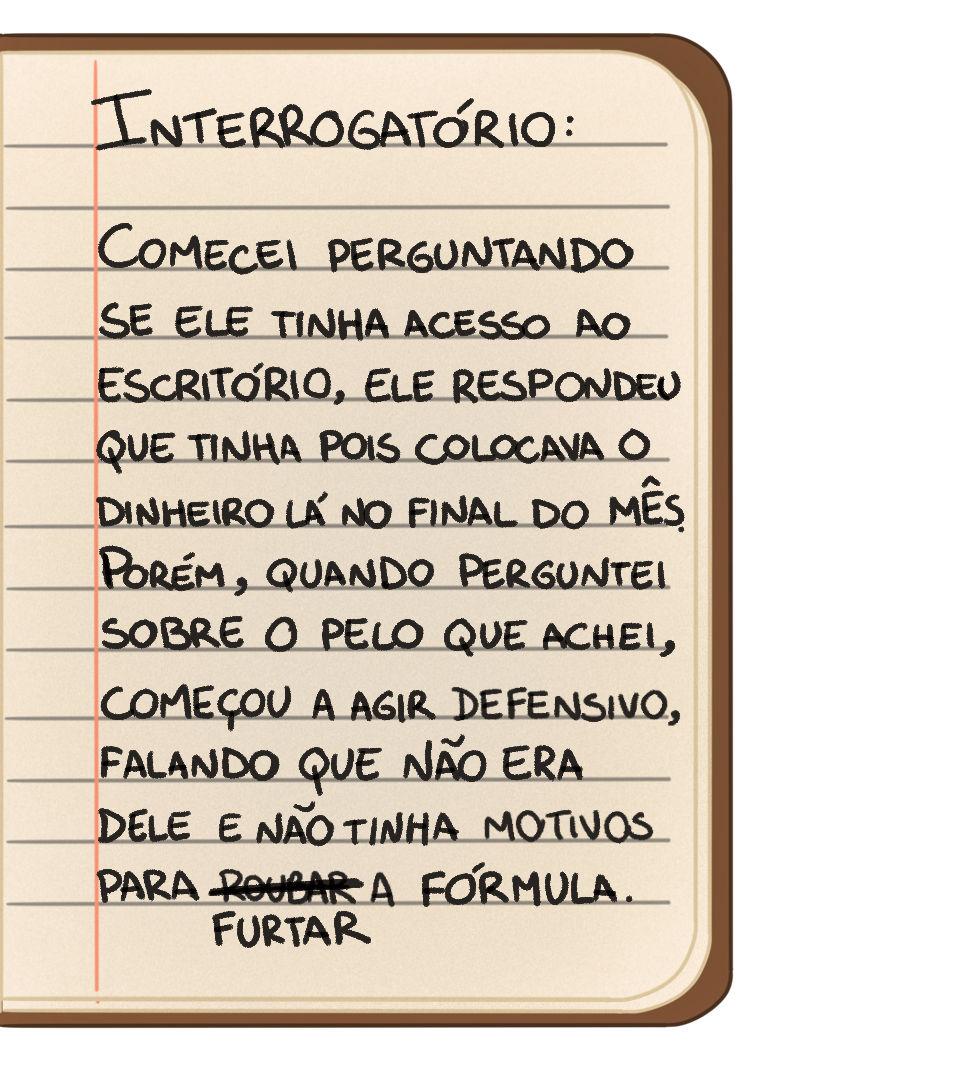 INTERROGATÓRIO:
COMECEI PERGUNTANDO
SE ELE TINHA ACESSO AO
ESCRITÓRIO, ELE RESPONDEU
QUE TINHA POIS COLOCAVA O
DINHEIRO LÁ NO FINAL DO MÊS.
PORÉM, QUANDO PERGUNTEI
SOBRE O PELO QUE ACHEI,
COMEÇOU A AGIR DEFENSIVO,
FALANDO QUE NÃO ERA
DELE E NÃO TINHA MOTIVOS
PARA ROUBAR A FÓRMULA.
FURTAR